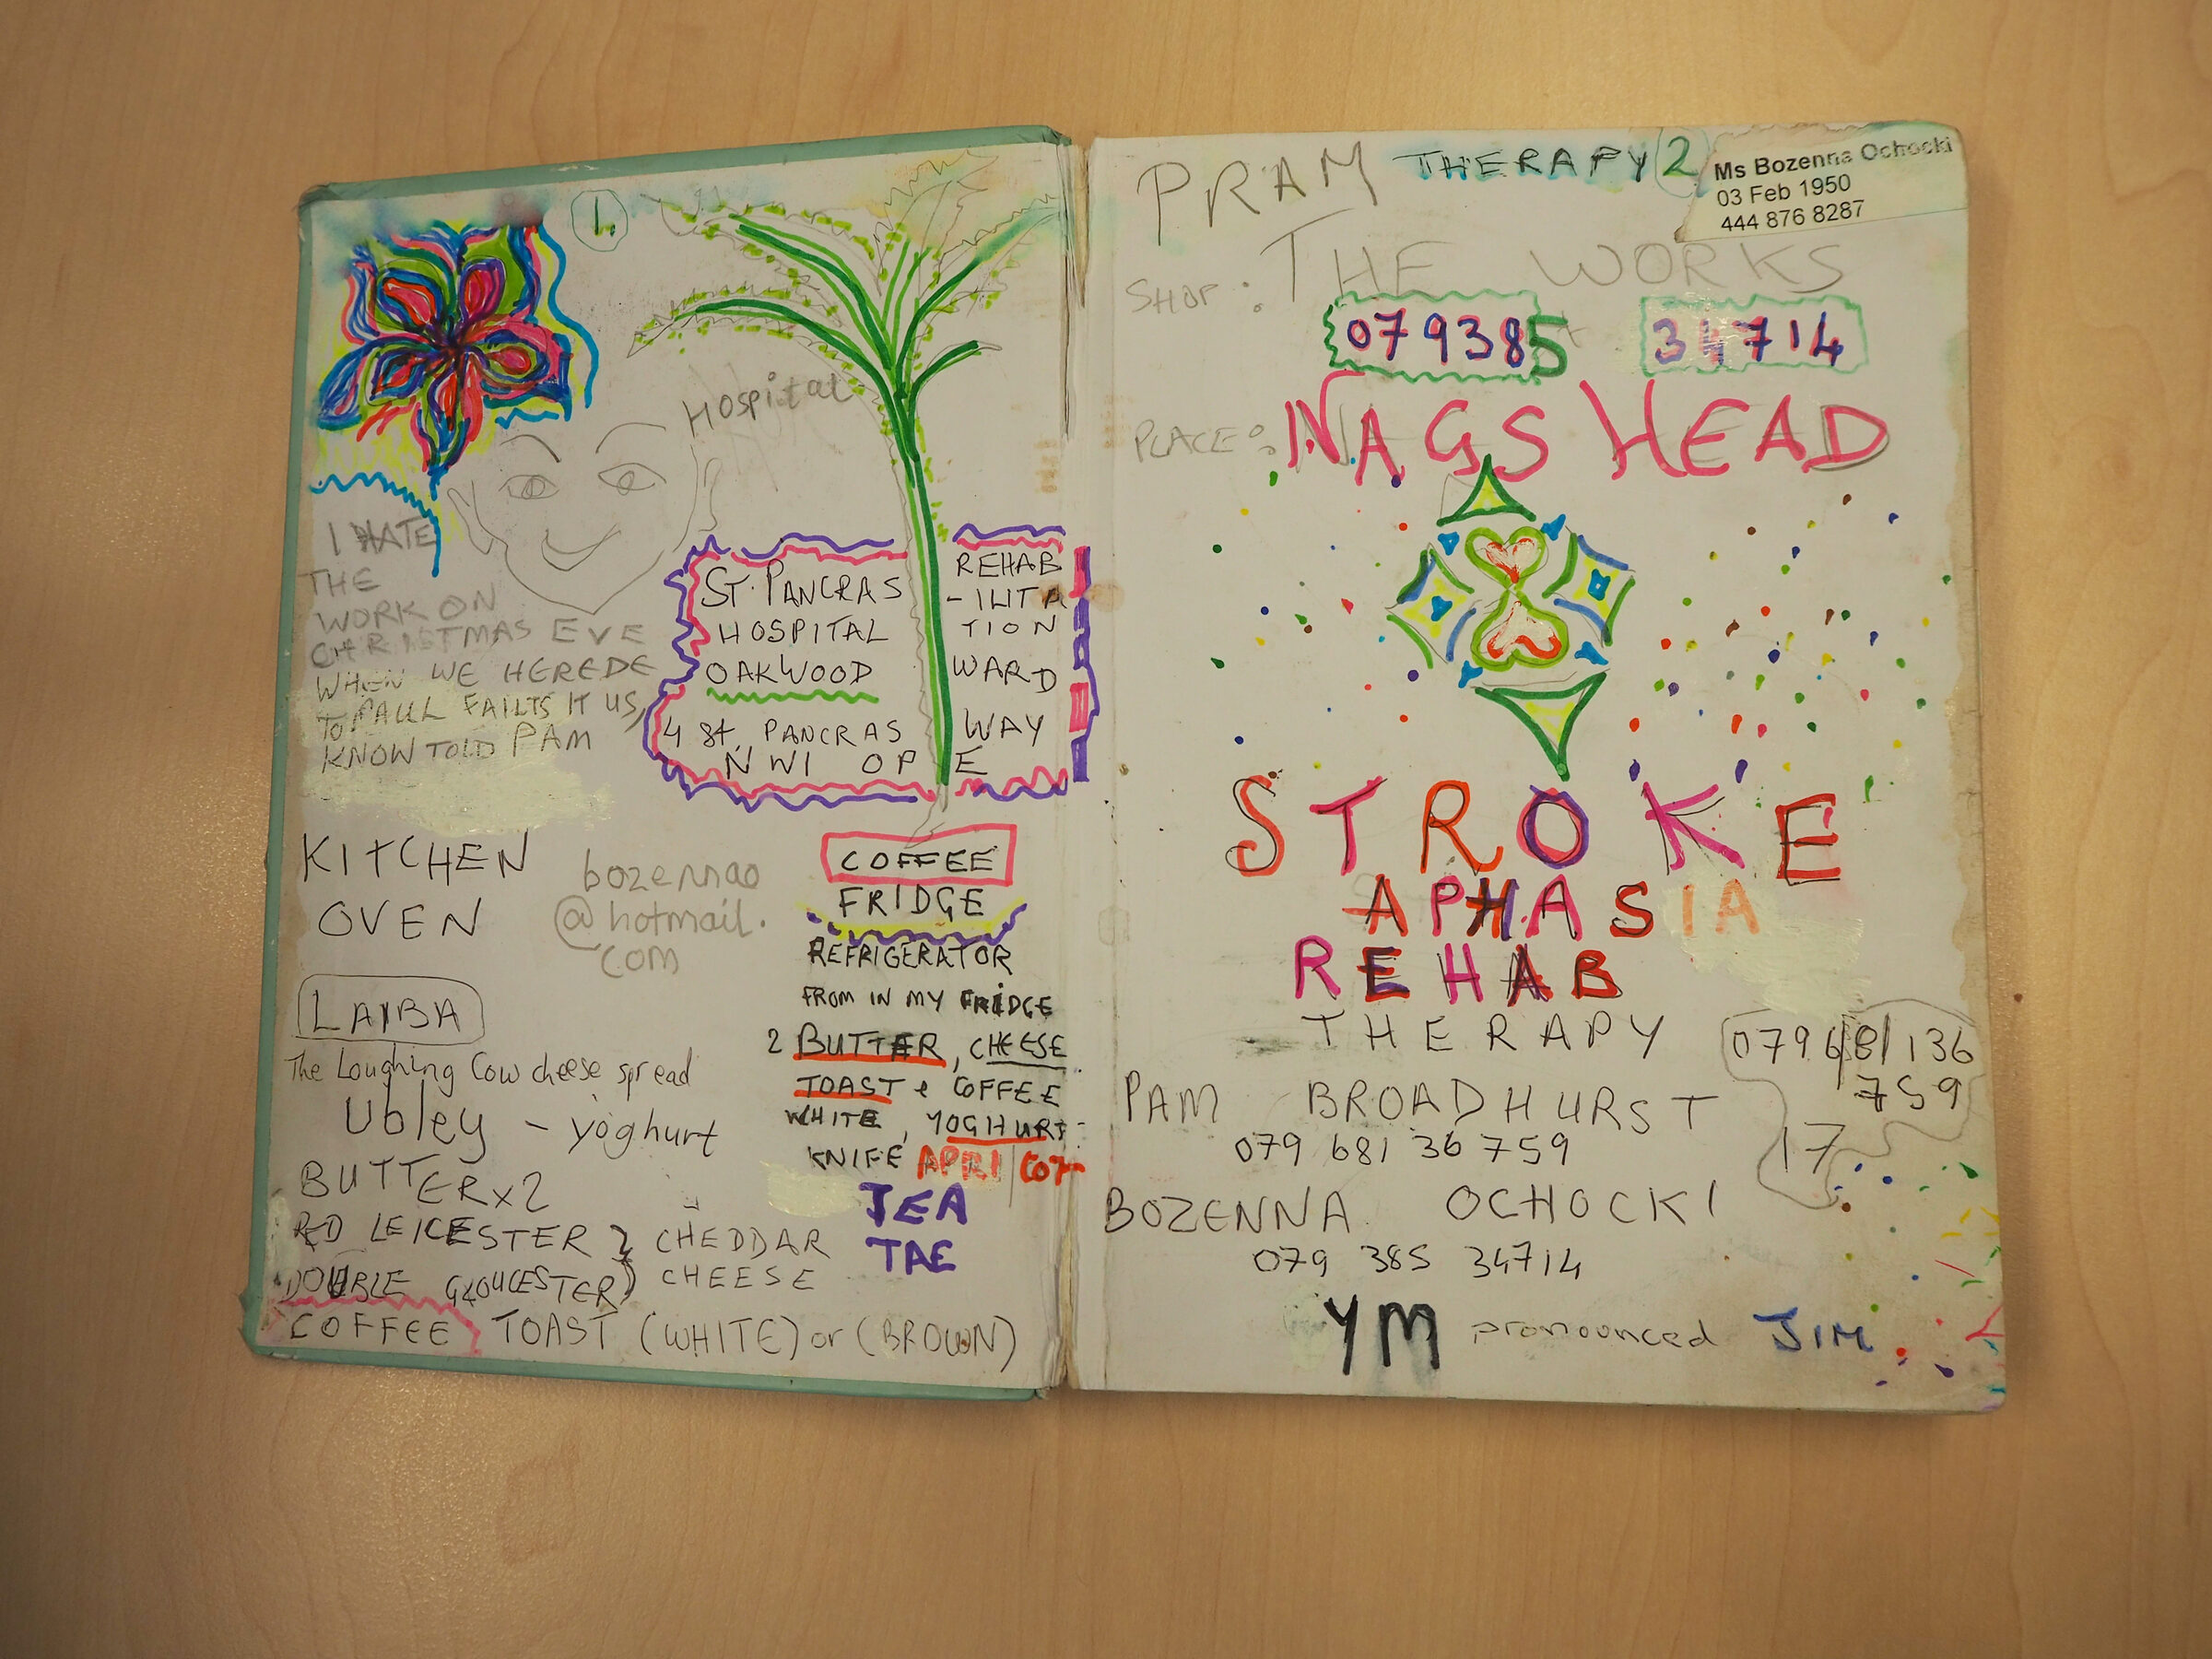 1.
Hospital
I HATE
THE
WORK ON
CHRISTMAS EVE
WHEN WE HEREDE
TO PAUL FAILTS IT US,
KNOW TOLD PAM
ST. PANCRAS REHAB
HOSPITAL -ILITA
TION
OAKWOOD WARD
4 St. PANCRAS WAY
NW1 OPE
KITCHEN
OVEN
bozennao
@hotmail.
com
LAIBA
The Loughing Cow cheese spread
Ubley - yoghurt
BUTTER x2
RED LEICESTER } CHEDDAR
DOUBLE GLOUCESTER } CHEESE
COFFEE TOAST (WHITE) or (BROWN)
COFFEE
FRIDGE
REFRIGERATOR
FROM IN MY FRIDGE
2 BUTTER, CHEESE
TOAST & COFFEE
WHITE, YOGHURT
KNIFE APRI/COT
TEA
TAE
PRAM THERAPY 2
Ms Bozenna Ochocki
03 Feb 1950
444 876 8287
SHOP: THE WORKS
079385 34714
PLACE: NAGS HEAD
STROKE
APHASIA
REHAB
THERAPY
079681136
759
17
PAM BROADHURST
079 681 36 759
BOZENNA OCHOCKI
079 385 34714
YM pronounced JIM